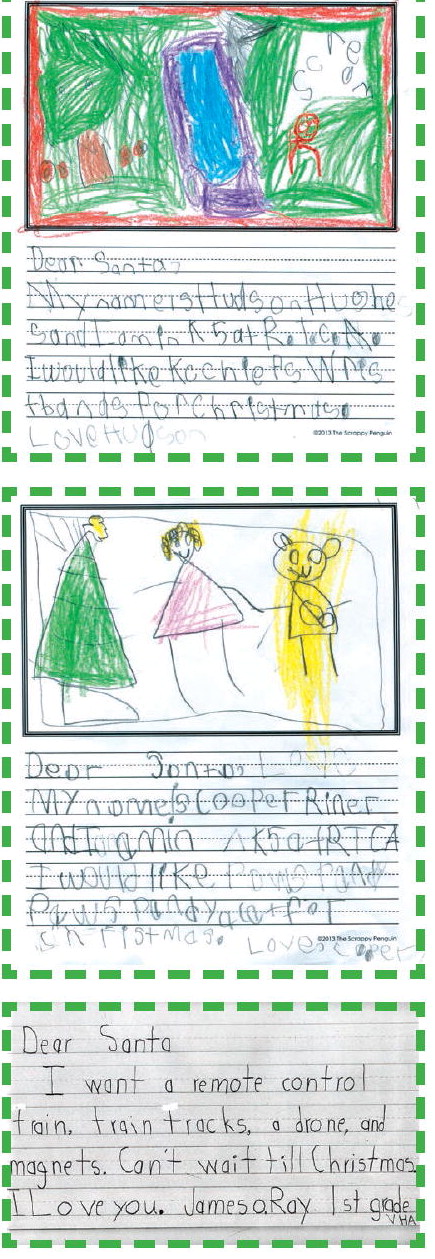 Scream
Dear Santa,
My name is Hudson Hughe
s and I am in K5 at R.T.C.A.
I would like Kc chiefs Wris
tbands for Christmas.
Love Hudson
©2013 The Scrappy Penguin
Dear Santa, Love
My name is Cooper Riner
and I am in K5 at RTCA
I would like Paws Pand
Paws Pandy a cat for
christmas.
Love cooper
©2013 The Scrappy Penguin
Dear Santa
I want a remote control
train, train tracks, a drone, and
magnets. Can't wait till Christmas.
I Love you. James O. Ray 1st grade
VHA